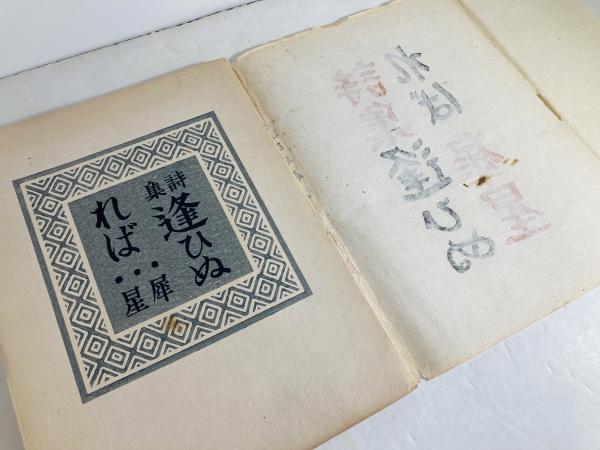 詩集
逢ひぬ
れば・・・
犀星
詩集
逢ひぬ
れば
犀星